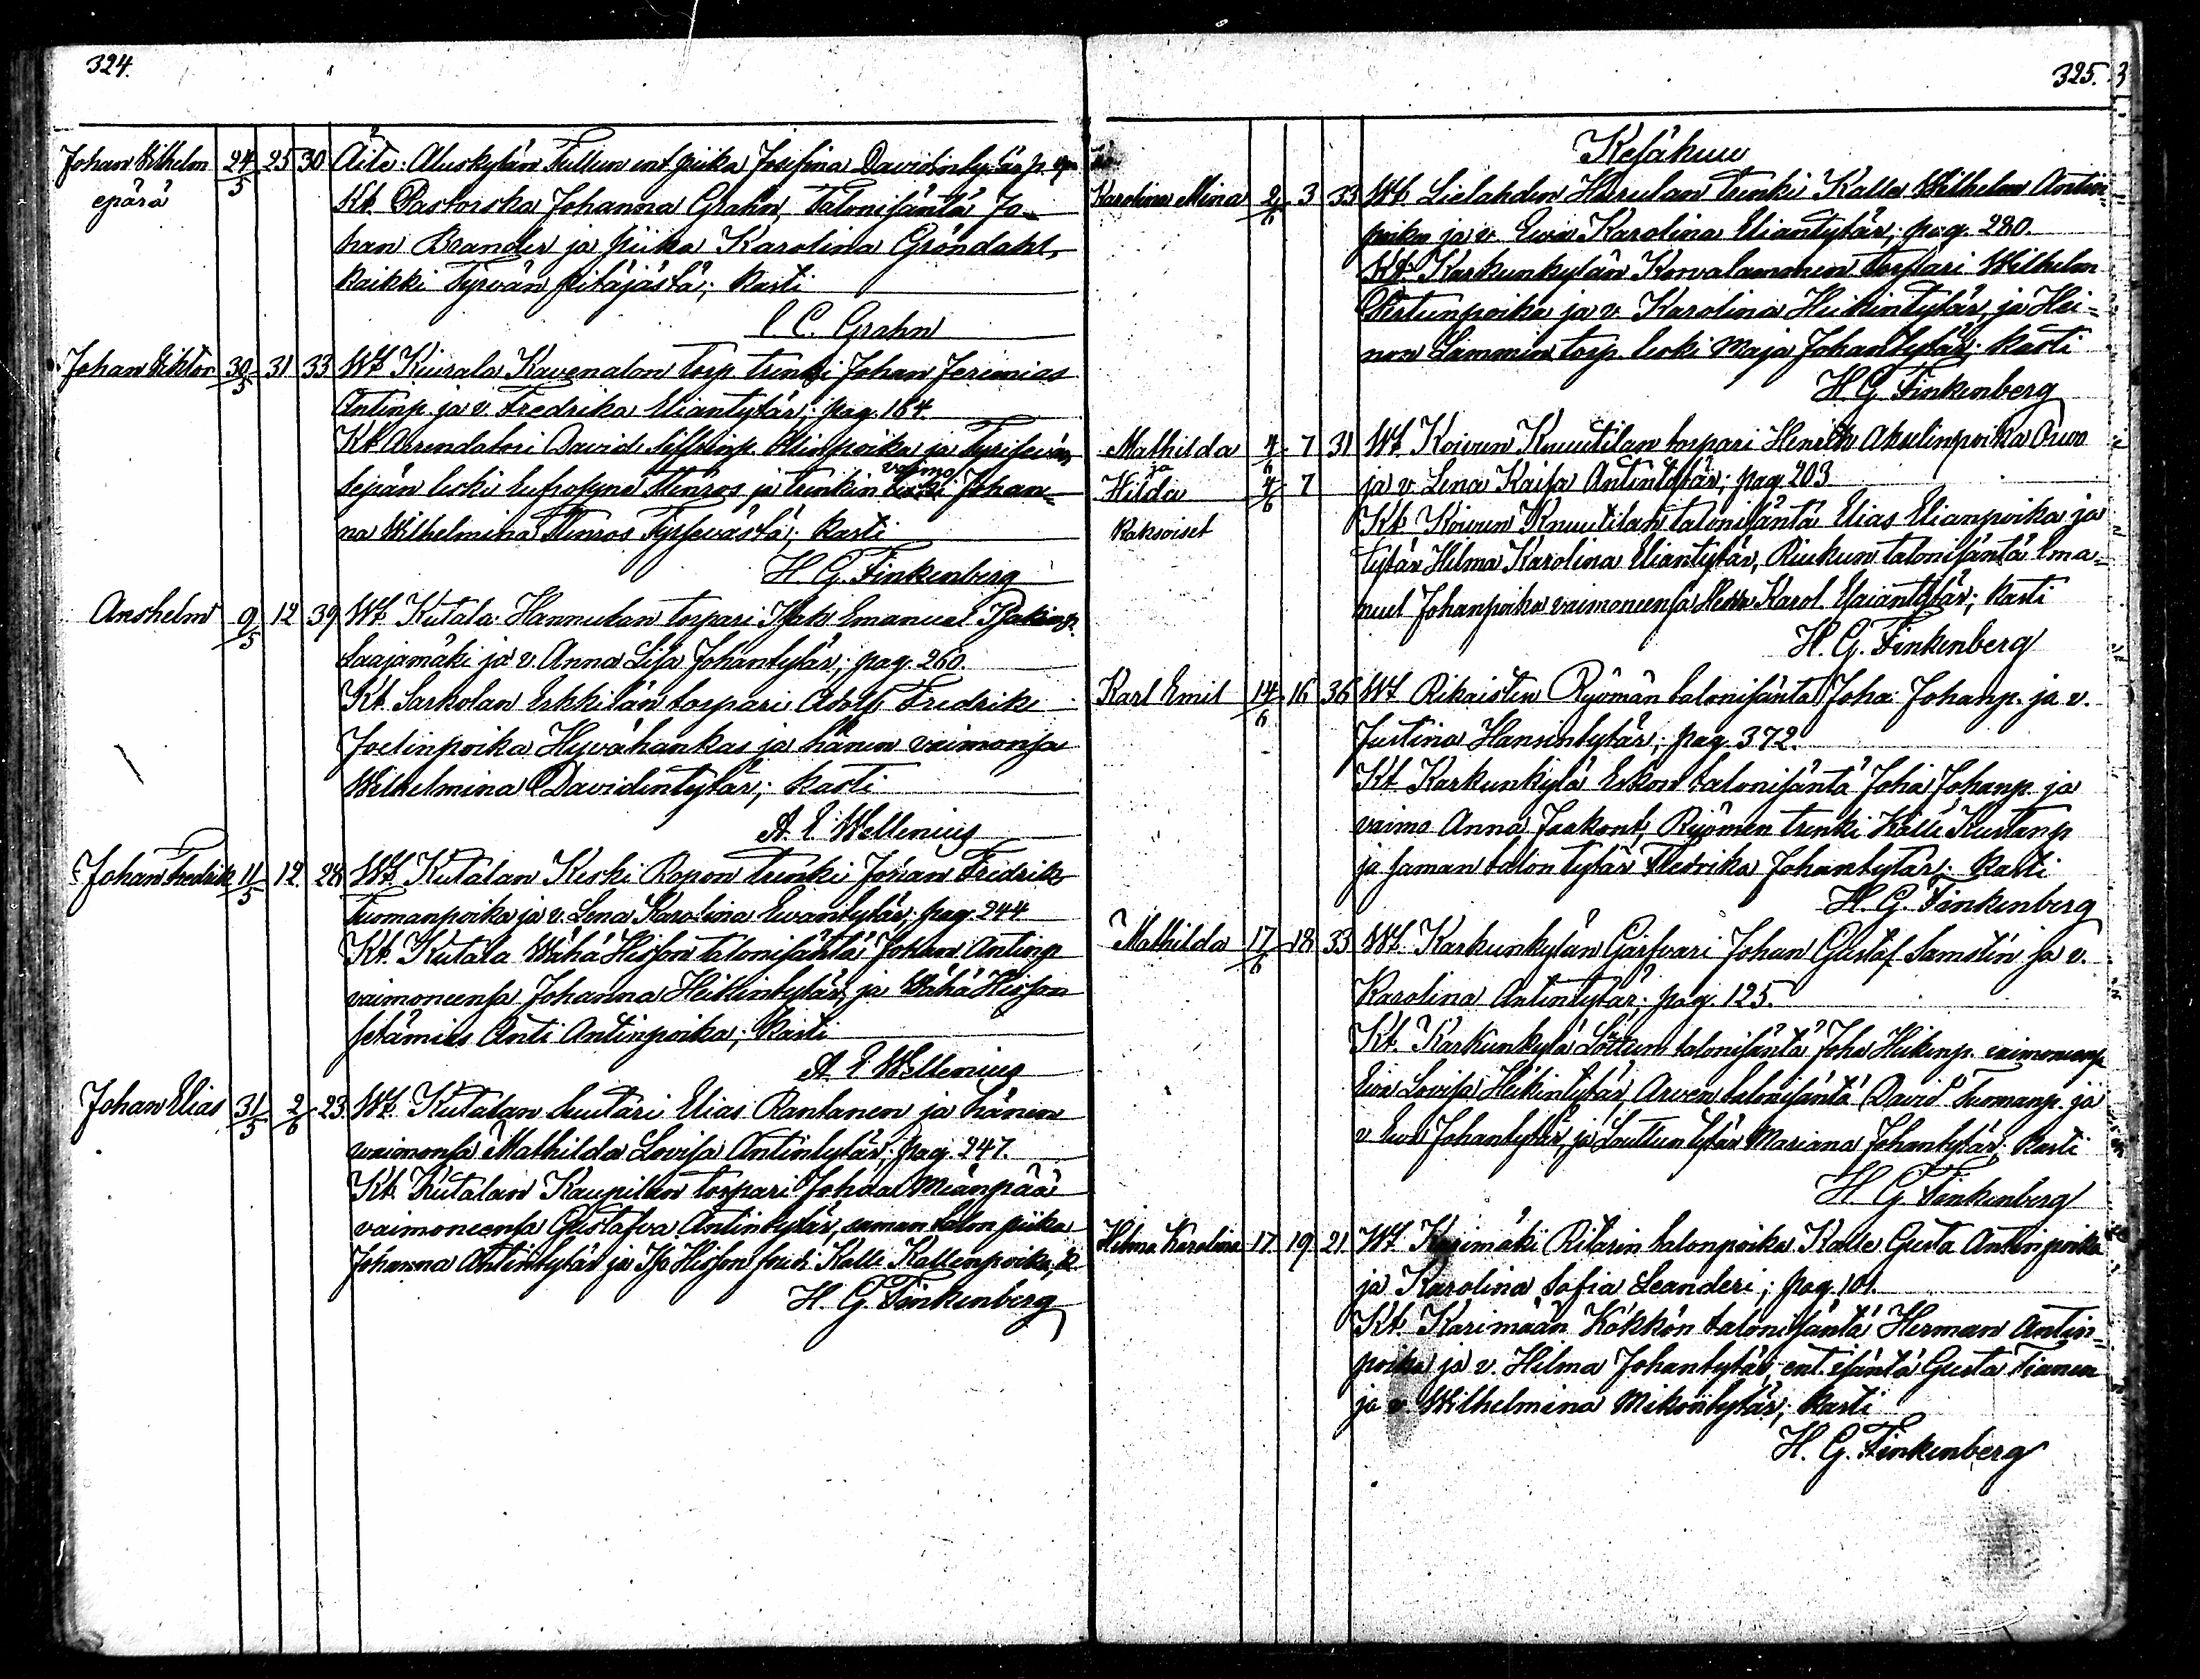 324.
Johan Wilhelm 24/5 25 30 Äite: Aluskylän Tullun ent piika Josefina Davidintytär p.
epärä Kt. Pastorska Johanna Grahn, Talonisäntä Jo-
han Brander ja piika Karolina Gröndahl,
kaikki Tyrvän pitäjästä; kasti
C. Grahn
Johan Viktor 30/5 31 33 Wt. Kiurala Kavendon torp. trenki Johan Jeremias
Antinp. ja v. Fredrika Eliantytär; pag. 164.
Kt Arrendatori David ja
Sepän leski Eufrosyne Stenros ja trenkin vaimo Johan-
na Wilhelmina Stenros ; kasti
H. G. Finkenberg
Anshelm 9/5 12 39 Wt. Kutala Hannulan torpari Isak Emanuel Isakinp.
Laajamäki ja v. Anna Lisa Johantytär; pag. 260.
Kt. Sarkolan Erkkilän torpari Adolf Fredrik
Joelinpoika Hyvähankas ja hänen vaimonsa
Wilhelmina Davidintytär; kasti
A. E. Wellenius
Johan Fredrik 11/5 12 28 Wt. Kutalan Keski Ropon trenki Johan Fridrik
Tuomanpoika ja v. Lena Karolina Ewantytär; pag. 244
Kt. Kutala Wähä Hisson talonisäntä Johan Antinp
vaimoneensa Johanna Heikintytär ja Wähä Hisson
setämies Anti Antinpoika; kasti
A. E. Wellenius
Johan Elias 31/5 2/6 23. Wt. Kutalan suutari Elias Rantanen ja hänen
vaimonsa Mathilda Lovisa Antintytär; pag. 247.
Kt. Kutalan Kaupilan torpari Johan Mäenpää
vaimoneensa Gustafva Antintytär, saman talon piika
Johanna Antintytär ja Iso Hisson Kalle Kallenpoika; k.
H. G. Finkenberg
325.
Kesäkuu
Karolina Mina 2/6 3 33 Wt. Lielahden Heruulan trenki Kalle Wilhelm Antin-
poika ja v. Ewa Karolina Eliantytär; pag. 280.
Kt. Karkunkylän torpari Wilhelm
Pertunpoika ja v. Karolina Heikintytär, ja Hei-
non torp. leski Maja Johantytär; kasti
H. G. Finkenberg
Mathilda 4/6 7 31 Wt. Koivun Knuutilan torpari Henrik Akselinpoika
ja
Hilda 4/6 7 ja v. Lena Kaisa Antintytär; pag 203
Kaksoiset Kt. Koivun Knuutilan talonisäntä Elias Elianpoika ja
tytär Hilma Karolina Eliantytär, Riukun talonisäntä Ema-
nuel Johanpoika vaimoneensa Hedv. Karol. Esaiantytär; kasti
H. G. Finkenberg
Karl Emil 14/6 16 36 Wt. Rikaisten Ryömän talonisäntä Joha Johanp. ja v.
Justina Hansintytär; pag. 372.
Kt. Karkunkylä Erkon talonisäntä Joha Johanp. ja
vaimo Anna Jaakont, Ryömen trenki Kalle Kustanp
ja saman talon tytär Fredrika Johantytär; kasti
H. G. Finkenberg
Mathilda 17/6 18 33 Wt. Karkunkylän Gästvari Johan Gustaf Samstén ja v.
Karolina Antintytär; pag. 125.
Kt. Karkunkylä talonisäntä Joha Heikinp. vaimoneensa
Eva Lovisa Heikintytär, Arven talonisäntä David Tuomanp. ja
v Eva Johantytär, ja tytär Mariana Johantytär; kasti
H. G. Finkenberg
Helma Karolina 17 19 21 Wt. Karimäki Ritarin talonpoika Kalle Gusta Antinpoika
ja Karolina Sofia Leanderi; pag. 101.
Kt. Karimään Kökkön talonisäntä Herman Antin-
poika ja v. Hilma Johantytär, ent. isäntä Gusta
ja v. Wilhelmina Mikontytär; kasti
H. G. Finkenberg